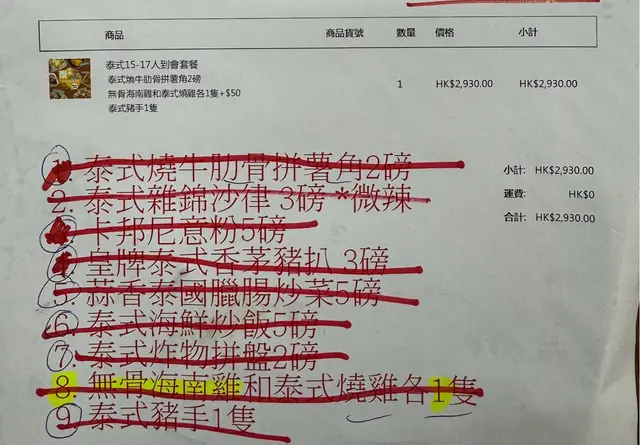 商品 商品貨號 數量 價格 小計
泰式15-17人到會套餐
泰式燒牛肋骨拼薯角2磅
無骨海南雞和泰式燒雞各1隻+$50
泰式豬手1隻
1 HK$2,930.00 HK$2,930.00
1. 泰式燒牛肋骨拼薯角2磅
2. 泰式雜錦沙律 3磅 *微辣
卡邦尼意粉5磅
皇牌泰式香茅豬扒 3磅
5. 蒜香泰國臘腸炒菜5磅
6. 泰式海鮮炒飯5磅
7. 泰式炸物拼盤2磅
8. 無骨海南雞和泰式燒雞各1隻
9. 泰式豬手1隻
小計: HK$2,930.00
運費: HK$0
合計: HK$2,930.00